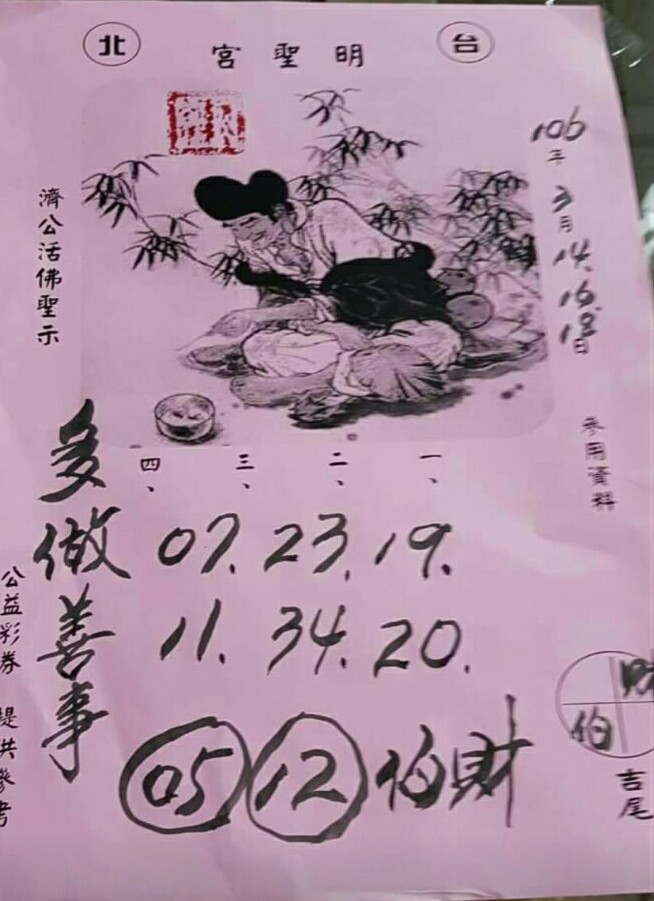 台北
明聖宮
106年3月14.16.18日
參用資料
濟公活佛聖示
一、
二、
三、
四、
19. 23. 07.
20. 34. 11.
財伯 12 05
多做善事
財伯
吉尾
公益彩券 提供參考